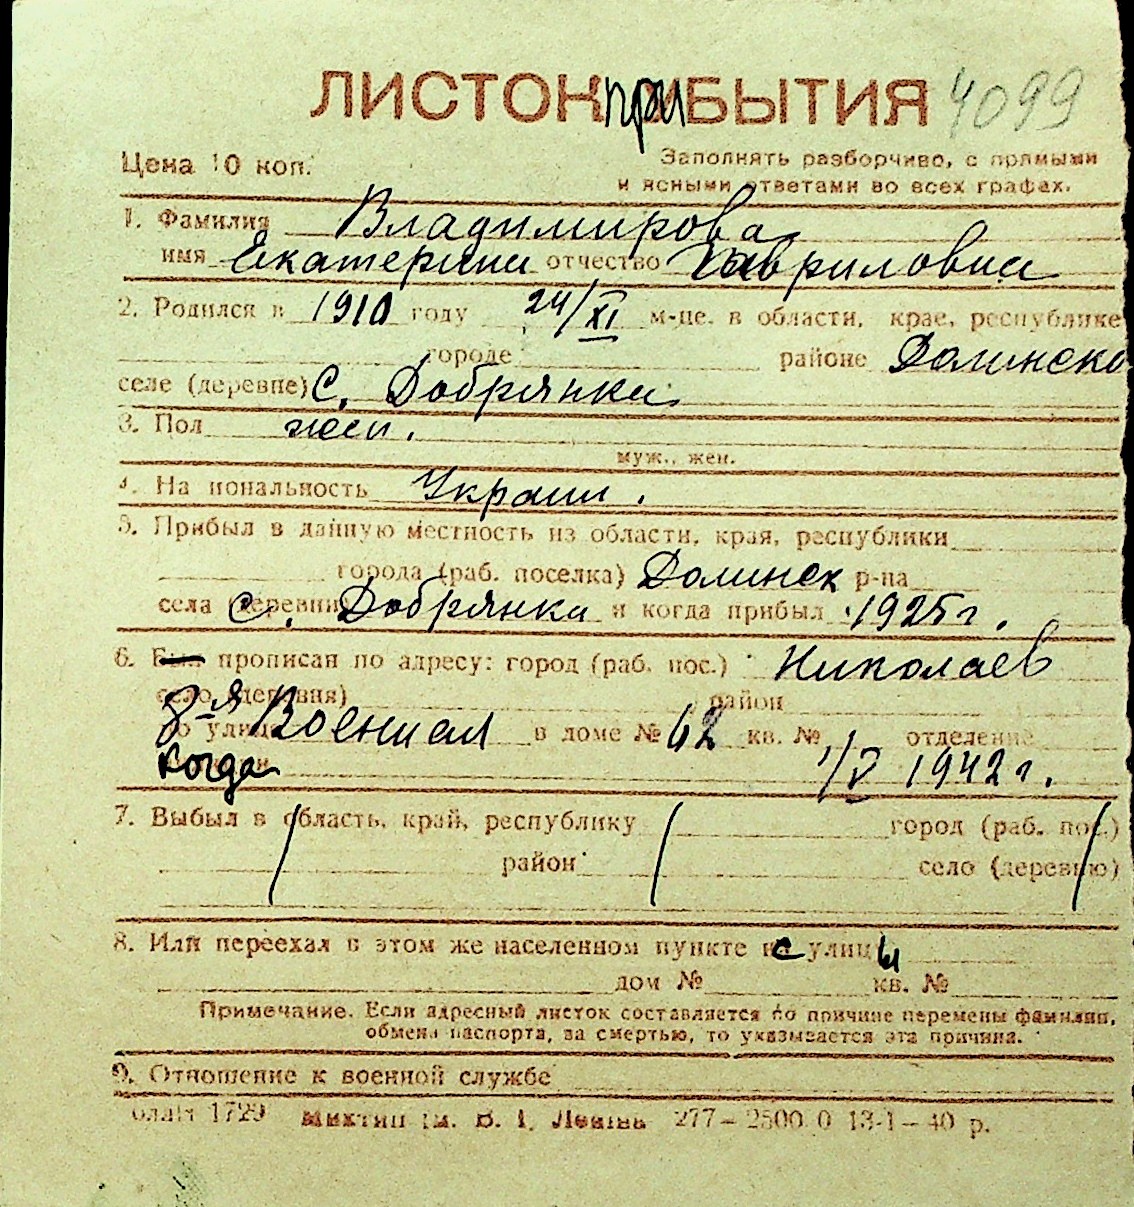 ЛИСТОК ПРИБЫТИЯ 4099
Цена 10 коп.
Заполнять разборчиво, с прямыми
и ясными ответами во всех графах.
1. Фамилия Владимирова
имя Екатерина отчество Гавриловна
2. Родился в 1910 году 24/XI м-це. в области, крае, республике
городе районе Долинско
селе (деревне) с. Добрянка
3. Пол жен.
муж., жен.
4. На иональность Украин.
5. Прибыл в данную местность из области, края, республики
города (раб. поселка) Долинск р-на
села (деревни) с. Добрянка и когда прибыл 1925 г.
6. Был прописан по адресу: город (раб. пос.) Николаев
село (деревня) район
по улице 8-я Военная в доме № 62 кв. № отделение
когда 1/V 1942 г.
7. Выбыл в область, край, республику город (раб. пос.)
район село (деревню)
8. Или переехал в этом же населенном пункте с улицы
дом № кв. №
Примечание. Если адресный листок составляется по причине перемены фамилии,
обмена паспорта, за смертью, то указывается эта причина.
9. Отношение к военной службе
1729 В. І. Леніна 277 – 2500.0 13-1 – 40 р.